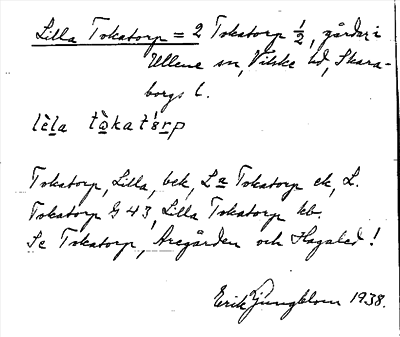 Lilla Tokatorp = 2 Tokatorp 1/2, gårdar i
Ullene sn, Vilske hd, Skara-
borgs l.
lè̱la tò̱kat8̱rp
Tokatorp, Lilla, bek, La Tokatorp ek, L.
Tokatorp G 43, Lilla Tokatorp kb.
Se Tokatorp, Aregården och Hagaled!
Erik Ljungblom 1938.